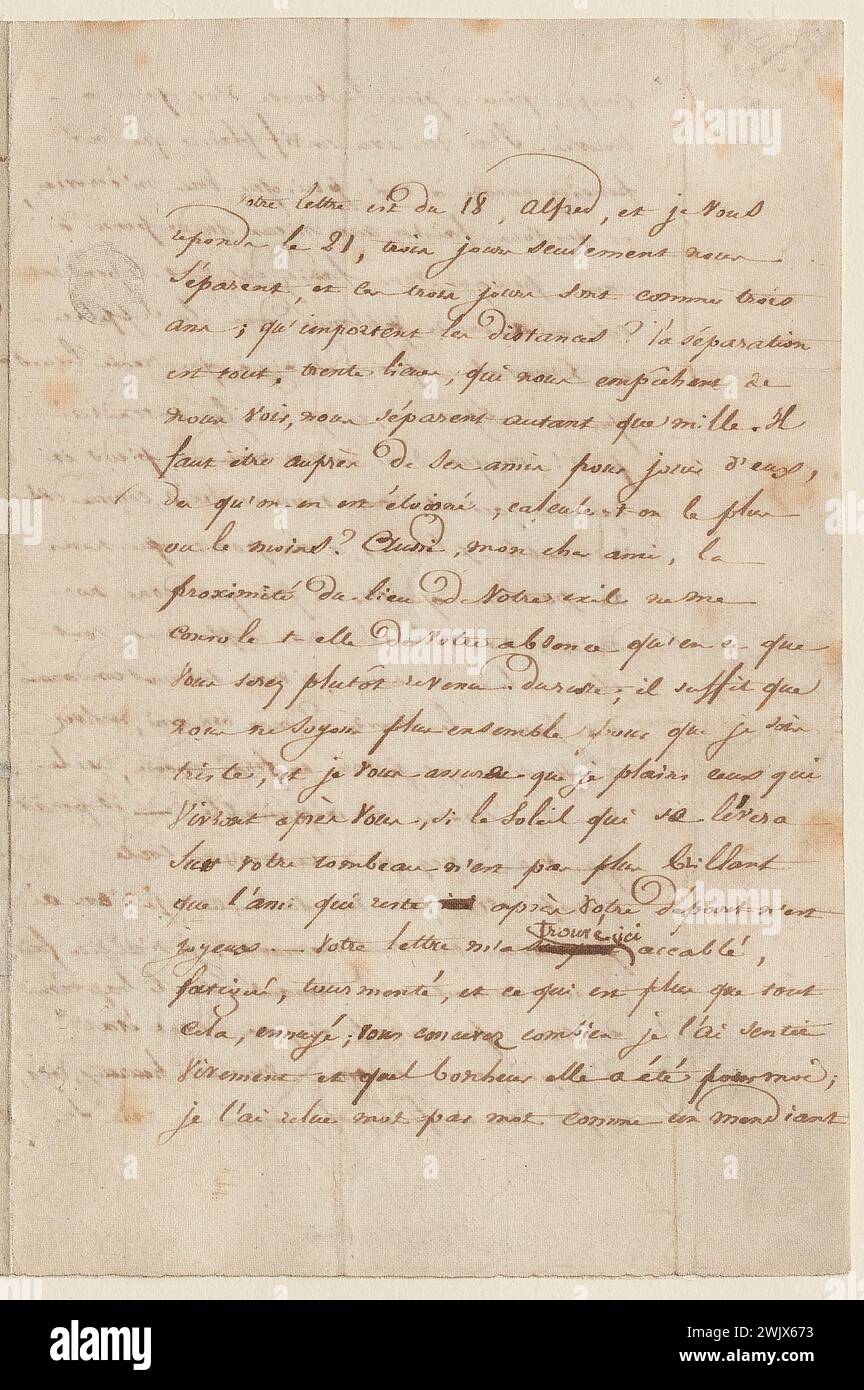 Votre lettre est du 18, Alfred, et je vous
reponds le 21, trois jours seulement nous
séparent, et ces trois jours sont comme trois
ans ; qu'importent les distances ? la séparation
est tout, trente lieues, qui nous empêchent de
nous voir, nous séparent autant que mille. Il
faut être auprès de ses amis pour jouir d'eux,
des qu'on en est éloigné, calcule t-on le plus
ou le moins ? Aussi, mon cher ami, la
proximité du lieu de votre exil ne me
console t-elle de votre absence qu'en ce que
vous serez plutôt revenu. Du reste ; il suffit que
nous ne soyons plus ensemble pour que je sois
triste, et je vous assure que je plains ceux qui
vivront après vous, si le soleil qui se lévera
sur votre tombeau n'est pas plus brillant
que l'ami qui reste après votre départ n'est
joyeux. — Votre lettre m'a trouvé ici accablé,
fatigué, tourmenté, et ce qui est plus que tout
cela, ennuyé ; vous concevez combien je l'ai sentie
vivement et quel bonheur elle a été pour moi ;
je l'ai relue mot par mot comme un mendiant
alamy
alamy
alamy
alamy
Image ID: 2WJX673
www.alamy.com